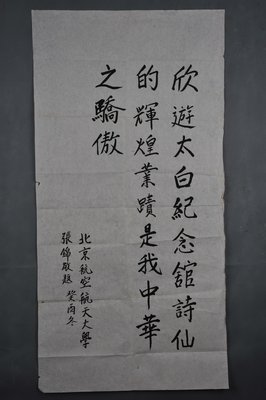 欣遊太白紀念舘詩仙
的輝煌業蹟是我中華
之驕傲
北京航空航天大學
張錦 題 癸酉冬